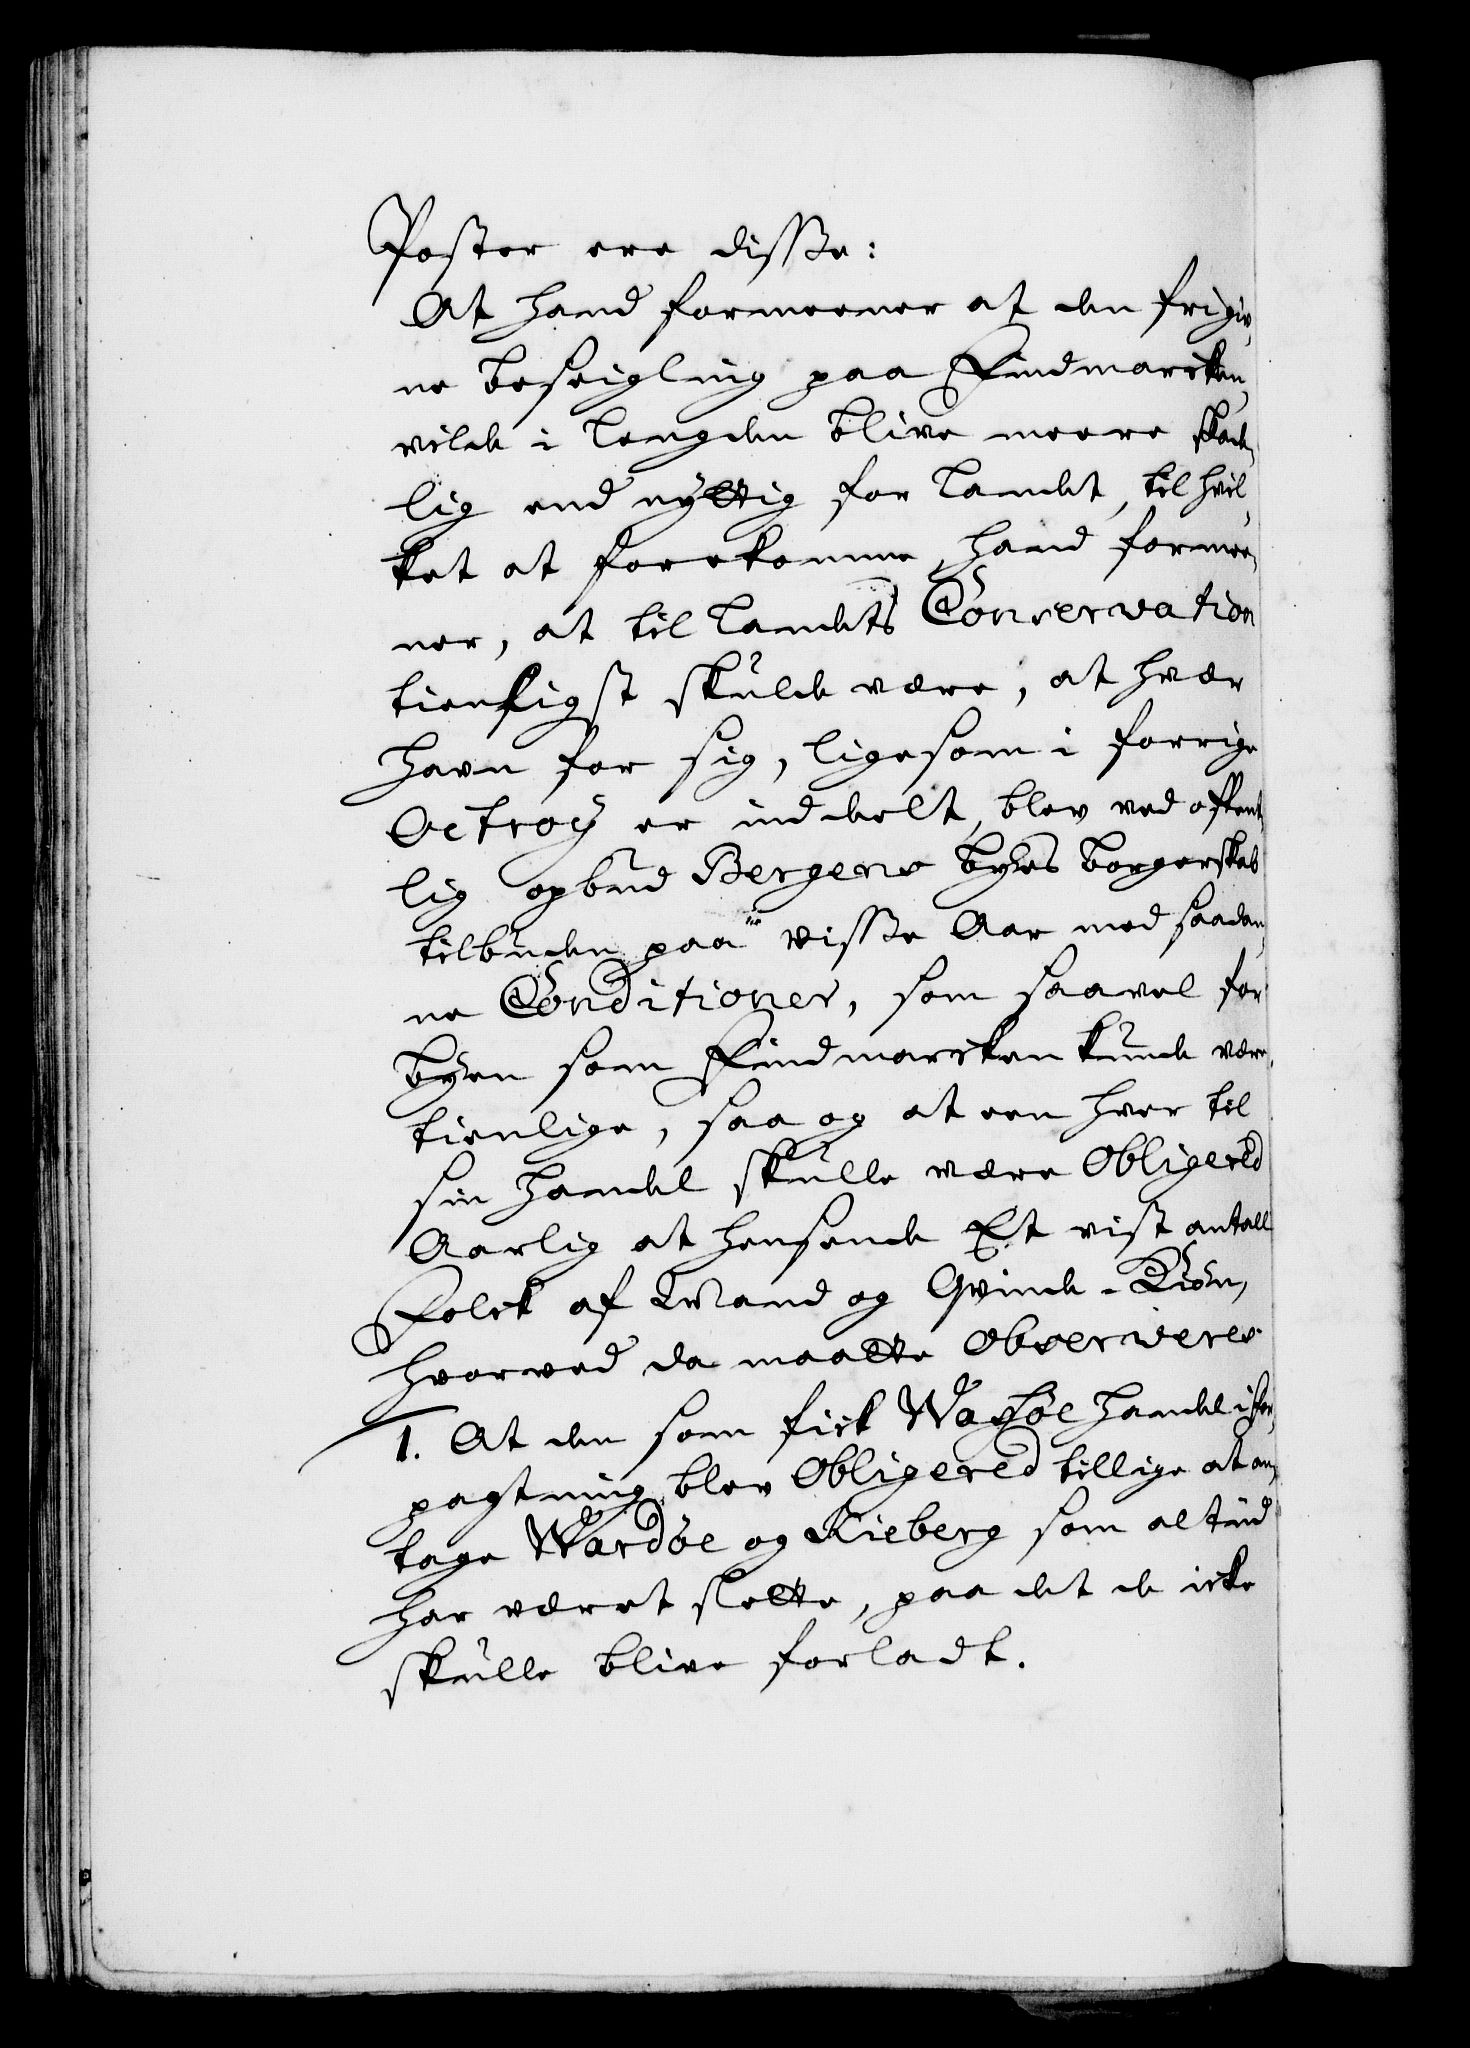 Poster ere disse:
At hand formeener at den frigiv,
ne beseigling paa Findmarcken,
vilde i Lengden blive meere skad,
lig end nyttig for Landet, til hvil,
ket at forekomme, hand formee,
ner, at til Landets Conservation
tienligst skulde være, at hvær
havn for sig, ligesom i forrige
Octroy er inddeelt, blev ved offent,
lig opbud Bergens byes borgerskab
tilbuden paa visse Aar med saadan,
ne Conditioner, som saavel for
byen som Findmarcken kunde være
tienlige, saa og at een hver til
sin handel skulle være Obligered
Aarlig at hensende Et vist antall
Folck af Mand og Qvinde-Kiøn,
hvorved da maatte Observeres
1. At den som fick Wadsöe handel i for,
pagtning, blev Obligered tillige at an,
tage Wardöe og Kieberg som altiid
har været slette, paa det de icke
skulle blive forladt.